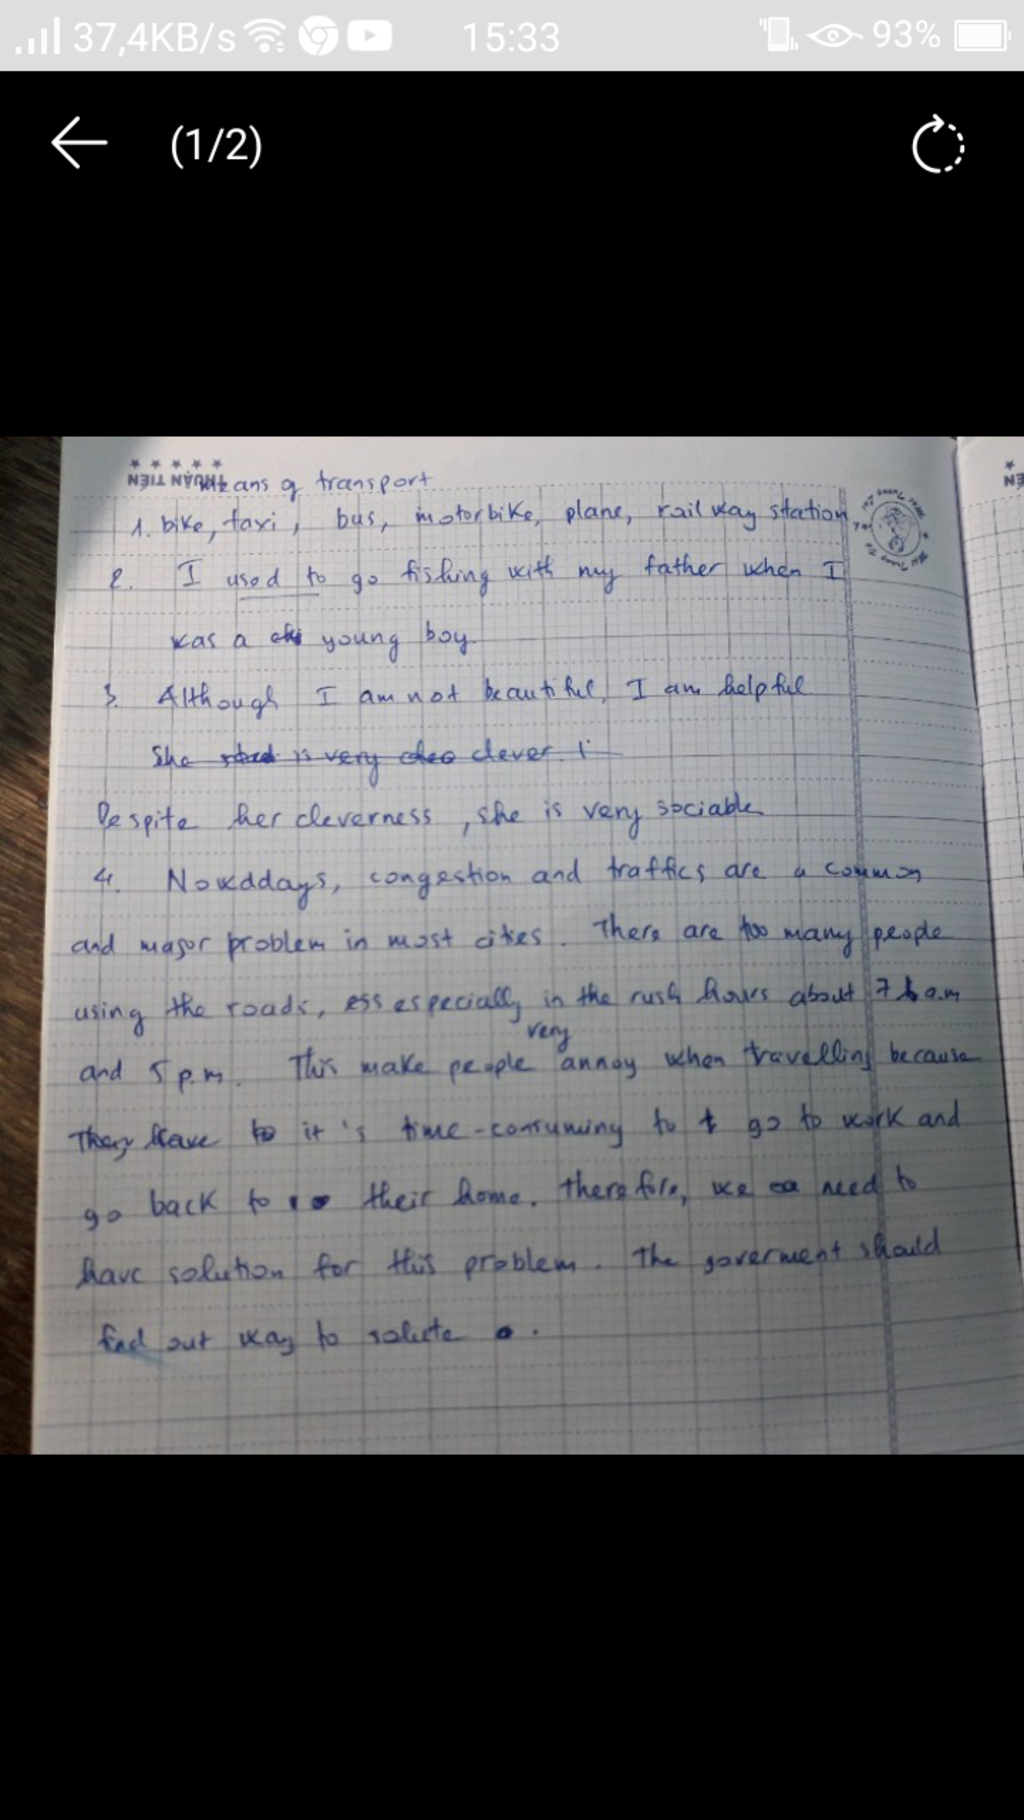 37,4KB/s 15:33 93%
(1/2)
THUẬN TIẾN Means of transport
1. bike, taxi, bus, motorbike, plane, railway station
2. I used to go fishing with my father when I
was a young boy.
3. Although I am not beautiful, I am helpful
She is very clever
Despite her cleverness, she is very sociable
4. Nowddays, congestion and traffics are a common
and major problem in most cities. There are too many people
using the roads, ess especially in the rush hours about 7 a.m
very
and 5 p.m. This make people annoy when travelling because
They have to it's time-consuming to t go to work and
go back to their home. Therefore, we need to
have solution for this problem. The goverment should
find out way to solute .